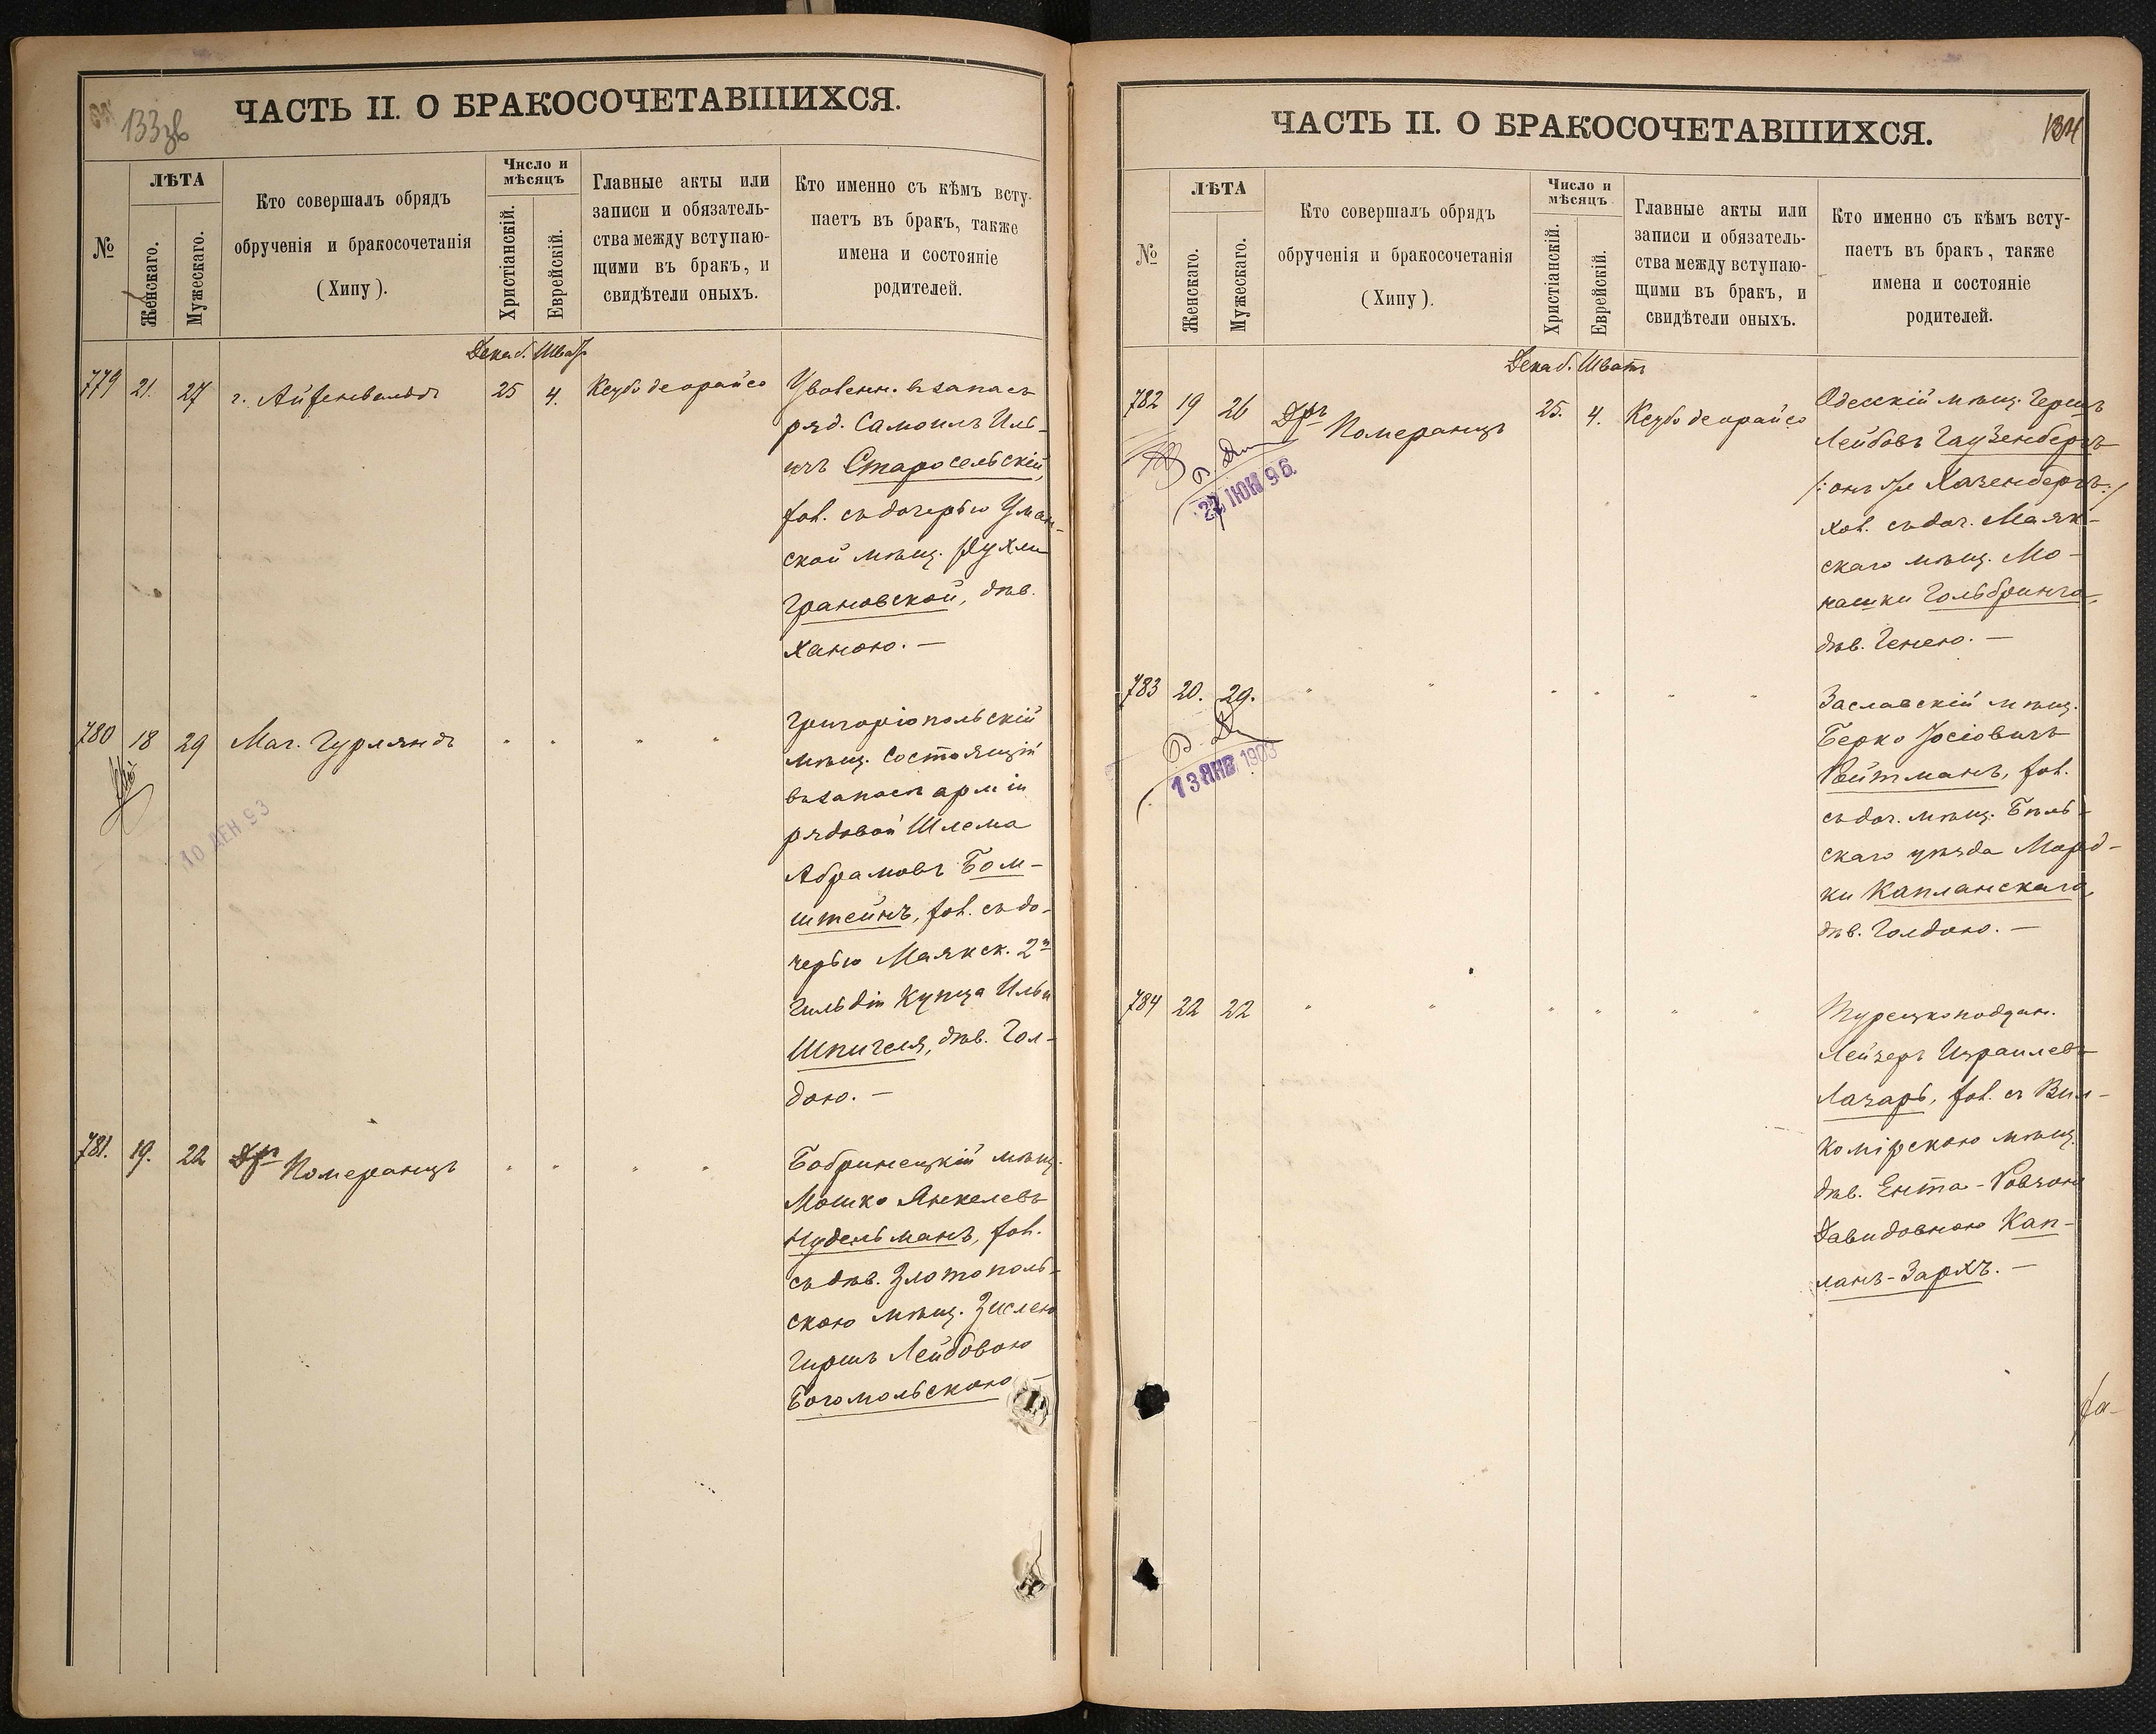 133 зв
ЧАСТЬ II. О БРАКОСОЧЕТАВШИХСЯ.
№
ЛѢТА
Женскаго.
Мужескаго.
Кто совершалъ обрядъ
обрученія и бракосочетанія
(Хипу).
Число и
мѣсяцъ
Христіанскій.
Еврейскій.
Главные акты или
записи и обязатель-
ства между вступаю-
щими въ бракъ, и
свидѣтели оныхъ.
Кто именно съ кѣмъ всту-
паетъ въ бракъ, также
имена и состояніе
родителей.
Декаб. Шват
779 21. 27 г. Айзенвальдъ 25 4. Ксубо деорайсо
Уволенн. въ запасъ
ряд. Самоилъ Иль-
ичъ Старосельскій,
хол. съ дочерью Уман-
ской мѣщ. Рухли
Грановской, дѣв.
Ханою. —
780 18 29 Маг. Гурляндъ " " " "
10 ДЕН 93
Григоріопольскій
мѣщ. состоящій
въ запасѣ арміи
рядовой Шлема
Абрамовъ Бом-
штейнъ, хол. съ до-
черью Маякск. 2й
гильдіи купца Ильи
Шпигеля, дѣв. Гол-
дою. —
781. 19. 22 Дръ Померанцъ " " " "
Бобринецкій мѣщ.
Мошко Янкелевъ
Нудельманъ, хол.
съ дѣв. Златополь-
скою мѣщ. Зислею
Гиршъ Лейбовою
Богомольскою —
ЧАСТЬ II. О БРАКОСОЧЕТАВШИХСЯ.
134
№
ЛѢТА
Женскаго.
Мужескаго.
Кто совершалъ обрядъ
обрученія и бракосочетанія
(Хипу).
Число и
мѣсяцъ
Христіанскій.
Еврейскій.
Главные акты или
записи и обязатель-
ства между вступаю-
щими въ бракъ, и
свидѣтели оныхъ.
Кто именно съ кѣмъ всту-
паетъ въ бракъ, также
имена и состояніе
родителей.
Декаб. Шватъ
782 19 26 Дръ Померанцъ 25. 4. Ксубо деорайсо
ІЮН 96.
Одесскій мѣщ. Гершъ
Лейбовъ Гаузенбергъ
/: онъ же Хазенбергъ :/
хол. съ доч. Маяк-
скаго мѣщ. Мо-
нашки Гольбринга,
дѣв. Генею. —
783 20. 29. " " " " " "
13 ЯНВ 1903
Заславскій мѣщ.
Берко Іосіовичъ
Ройтманъ, хол.
съ доч. мѣщ. Бѣль-
скаго уѣзда Морд-
ки Капланскаго,
дѣв. Голдою. —
784 22 22 " " " " " "
Турецкоподдан.
Лейзеръ Израилевъ
Лазарь, хол. съ Вил-
комірскою мѣщ.
дѣв. Ента-Ровзою
Давидовною Кап-
ланъ-Зархъ. —